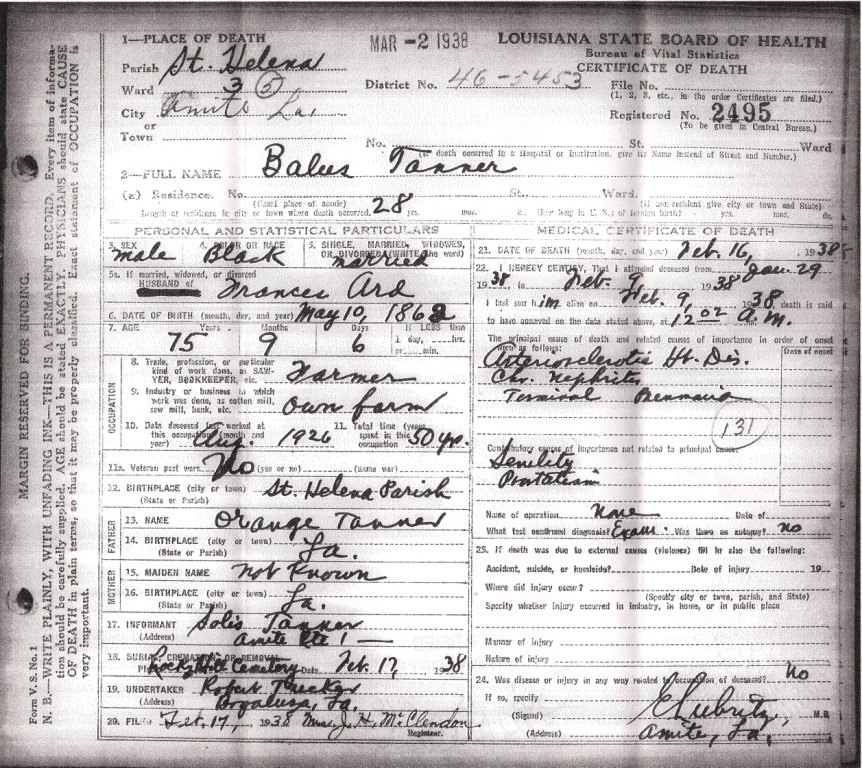 1—PLACE OF DEATH
MAR -2 1938
LOUISIANA STATE BOARD OF HEALTH
Bureau of Vital Statistics
CERTIFICATE OF DEATH
Parish St. Helena
Ward 3 (5)
District No. 46-5453
File No.
(1, 2, 3, etc., in the order Certificates are filed.)
City Amite La.
or
Town
Registered No. 2495
(To be given in Central Bureau.)
No. St. Ward
(If death occurred in a Hospital or Institution, give its Name instead of Street and Number.)
2—FULL NAME Balus Tanner
(a) Residence. No. St., Ward.
(Usual place of abode) (If non-resident give city or town and State)
Length of residence in city or town where death occurred. 28 yrs. mos. ds. How long in U. S., if of foreign birth? yrs. mos. ds.
PERSONAL AND STATISTICAL PARTICULARS
3. SEX 4. COLOR OR RACE 5. SINGLE, MARRIED, WIDOWED, OR DIVORCED (WRITE the word)
male Black married
5a. If married, widowed, or divorced
HUSBAND of Frances Ard
6. DATE OF BIRTH (month, day, and year) May 10, 1862
7. AGE Years Months Days If LESS than
75 9 6 1 day, hrs.
or min.
OCCUPATION
8. Trade, profession, or particular
kind of work done, as SAWYER, BOOKKEEPER, etc. Farmer
9. Industry or business in which
work was done, as cotton mill,
saw mill, bank, etc. own farm
10. Date deceased last worked at
this occupation (month and
year) Aug. 1926
11. Total time (years)
spent in this
occupation 50 yrs.
11a. Veteran past wars No (yes or no) (name war)
12. BIRTHPLACE (city or town) St. Helena Parish
(State or Parish)
FATHER
13. NAME Orange Tanner
14. BIRTHPLACE (city or town) La.
(State or Parish)
MOTHER
15. MAIDEN NAME not Known
16. BIRTHPLACE (city or town) La.
(State or Parish)
17. INFORMANT Solis Tanner
(Address) Amite Rte 1
18. BURIAL, CREMATION OR REMOVAL
Rocky Hill Cemetery Date Feb. 17, 1938
19. UNDERTAKER Robert Trucker
Bogalusa, La.
20. FILED Feb. 17, 1938 Mrs. J. H. McClendon
Registrar.
MEDICAL CERTIFICATE OF DEATH
21. DATE OF DEATH (month, day, and year) Feb. 16, 1938
22. I HEREBY CERTIFY, That I attended deceased from Jan. 29
1938 to Feb. 9, 1938
I last saw him alive on Feb. 9, 1938 death is said
to have occurred on the date stated above, at 12 02 A.m.
The principal cause of death and related causes of importance in order of onset
were as follows: Date of onset
Arteriosclerotic Ht. Dis.
Chr. Nephritis
Terminal
131
Contributory causes of importance not related to principal cause:
Senility
Prostatism
Name of operation None Date of
What test confirmed diagnosis? Exam. Was there an autopsy? no
23. If death was due to external causes (violence) fill in also the following:
Accident, suicide, or homicide? Date of injury 19
Where did injury occur?
(Specify city or town, parish, and State)
Specify whether injury occurred in industry, in home, or in public place
Manner of injury
Nature of injury
24. Was disease or injury in any way related to occupation of deceased? No
If so, specify
(Signed) M.D.
(Address) Amite, La.
MARGIN RESERVED FOR BINDING.
Form V. S. No. 1
N. B.—WRITE PLAINLY, WITH UNFADING INK—THIS IS A PERMANENT RECORD. Every item of information should be carefully supplied. AGE should be stated EXACTLY. PHYSICIANS should state CAUSE OF DEATH in plain terms, so that it may be properly classified. Exact statement of OCCUPATION is very important.